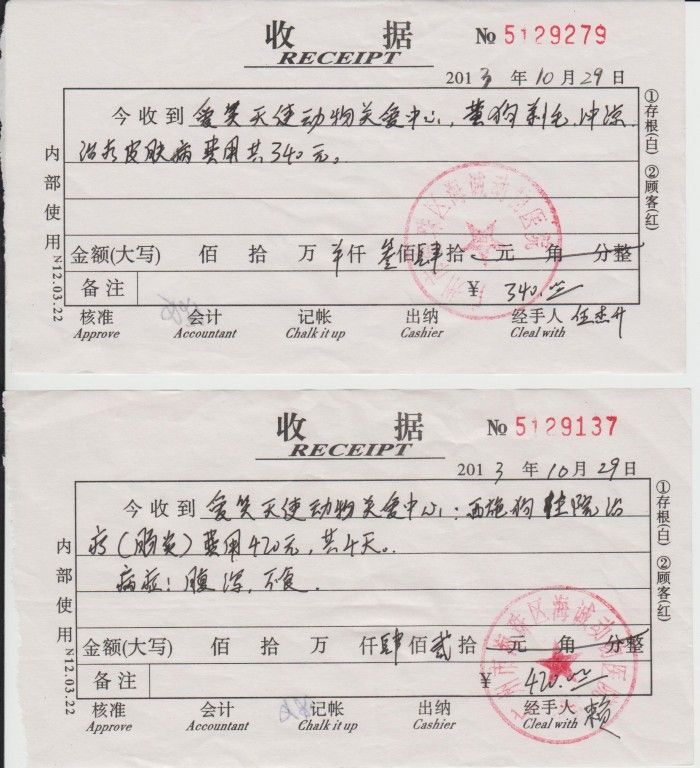 收 据
RECEIPT
№ 5129279
2013 年 10 月 29 日
今收到 爱笑天使动物关爱中心，黄狗剃毛，冲凉
治疗皮肤病费用共340元。
金额(大写) 佰 拾 万 仟 叁佰肆拾 元 角 分整
备注 ¥ 340.00
核准 会计 记帐 出纳 经手人 任杰升
Approve Accountant Chalk it up Cashier Cleal with
内部使用 N12.03.22
①存根(白) ②顾客(红)
海诚动物医院
收 据
RECEIPT
№ 5129137
2013 年 10 月 29 日
今收到 爱笑天使动物关爱中心：西施狗住院治
疗（肠炎）费用420元，共4天。
病症：腹泻，不食．
金额(大写) 佰 拾 万 仟 肆佰贰拾 元 角 分整
备注 ¥ 420.00
核准 会计 记帐 出纳 经手人 赖
Approve Accountant Chalk it up Cashier Cleal with
内部使用 N12.03.22
①存根(白) ②顾客(红)
区海诚动物医院